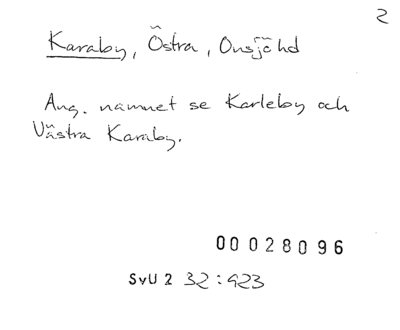 2
Karaby, Östra, Onsjöhd
Ang. namnet se Karleby och
Västra Karaby.
00028096
SvU 2 32:423